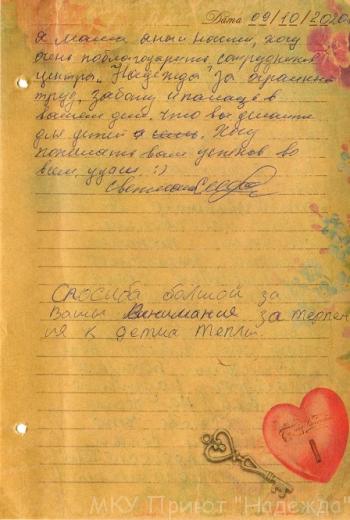 Дата 09/10/2020
Я мама Анастасии, хочу
очень поблагодарить сотрудников
центра "Надежда за огромный
труд, заботу и помощь в
вашем деле. Что вы делаете
для детей. Хочу
пожелать вам успехов во
всем, удачи :)
Светлана
Спосиба болшой за
Вашы Внимания за терпен
ия к детма тепли.
МКУ Приют "Надежда"